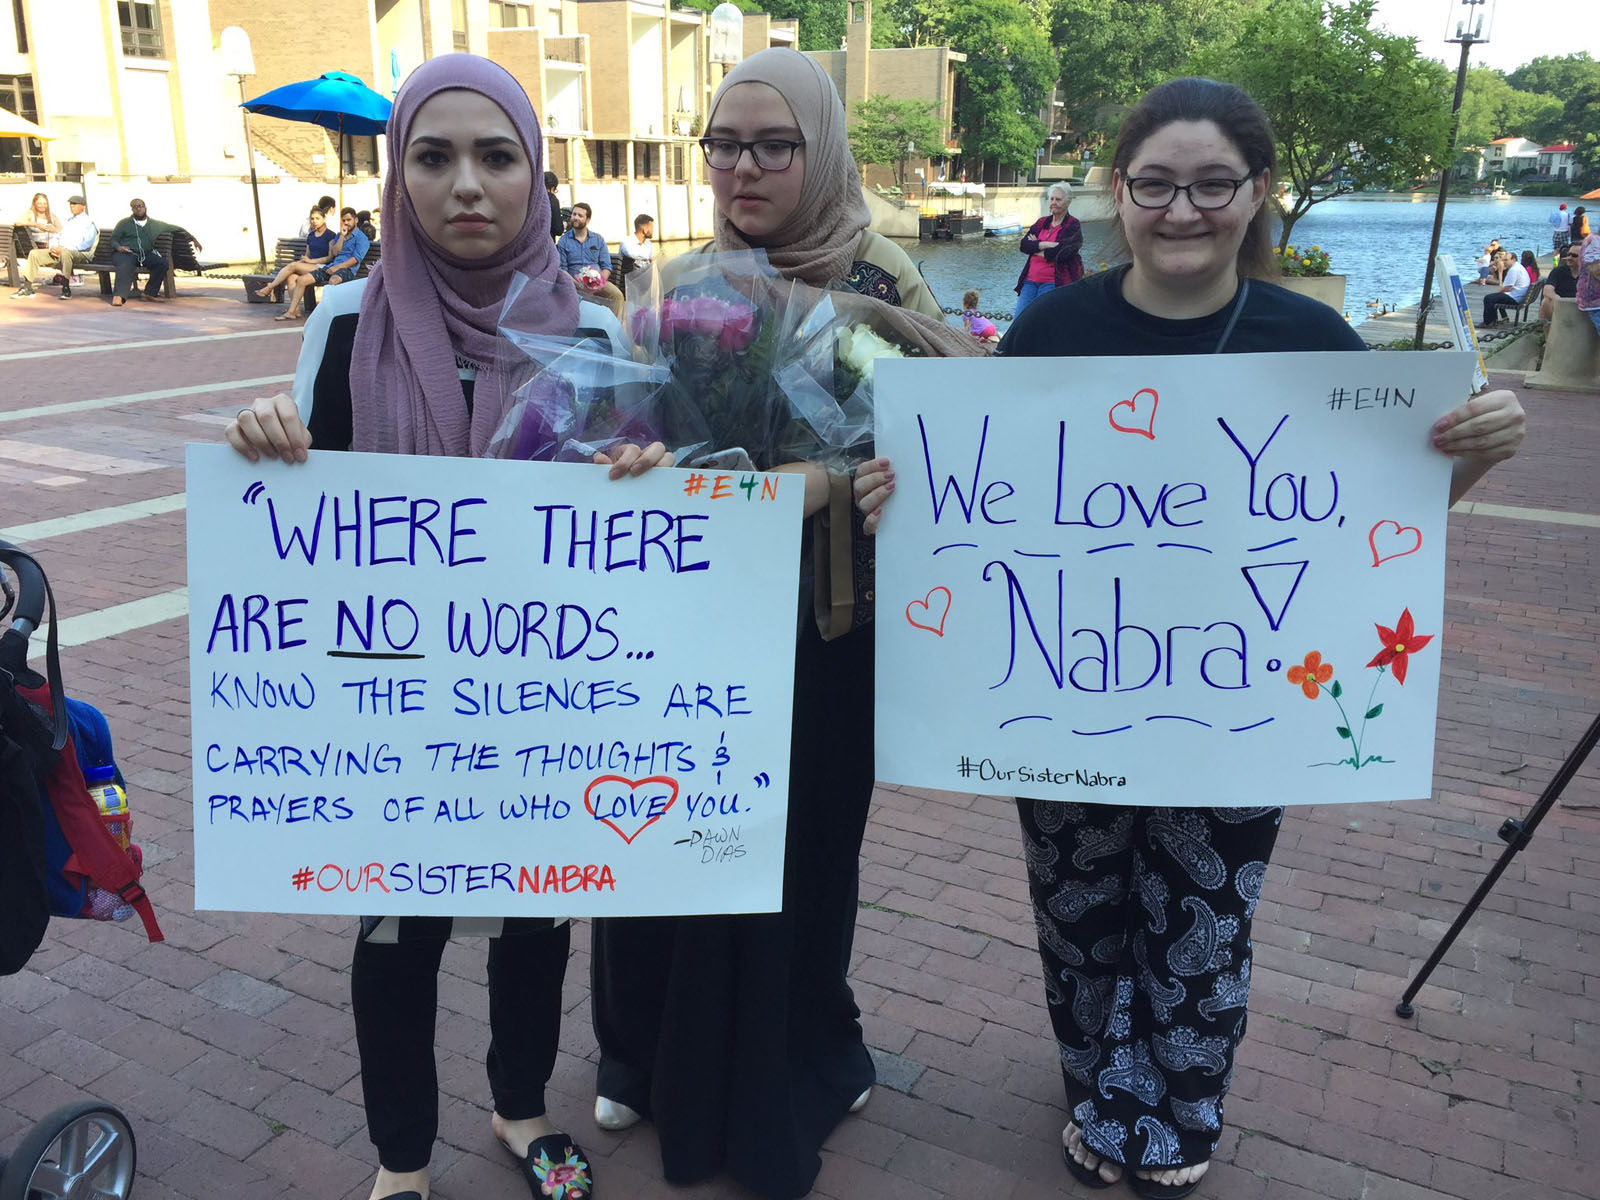 #E4N
"WHERE THERE
ARE NO WORDS...
KNOW THE SILENCES ARE
CARRYING THE THOUGHTS &
PRAYERS OF ALL WHO LOVE YOU."
-DAWN
DIAS
#OURSISTERNABRA
#E4N
We Love You,
Nabra!
#OurSisterNabra